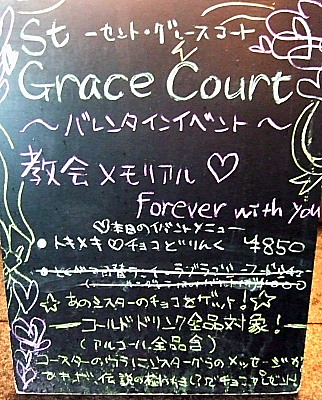 St ーセント・グレースコート
Grace Court
～バレンタインイベント～
教会メモリアル♡
Forever with you
♡本日のイベントメニュー
• トキメキ♡チョコどりんく ¥850
☆あのミスターのチョコとゲット！☆
コールドドリンク全品対象！
(アルコール全品含)
コースターのウラにミスターグラのメッセージが
伝説の チョコプレゼント！